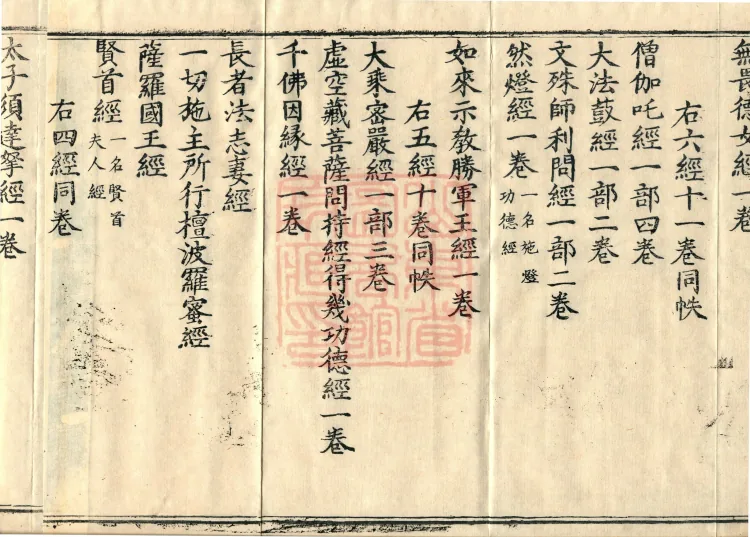 無畏德女經一卷
右六經十一卷同帙
僧伽吒經一部四卷
大法鼓經一部二卷
文殊師利問經一部二卷
然燈經一卷 一名施燈
功德經
如來示教勝軍王經一卷
右五經十卷同帙
大乘密嚴經一部三卷
虛空藏菩薩問持經得幾功德經一卷
千佛因緣經一卷
長者法志妻經
一切施主所行檀波羅蜜經
薩羅國王經
賢首經 一名賢首
夫人經
右四經同卷
太子須達拏經一卷